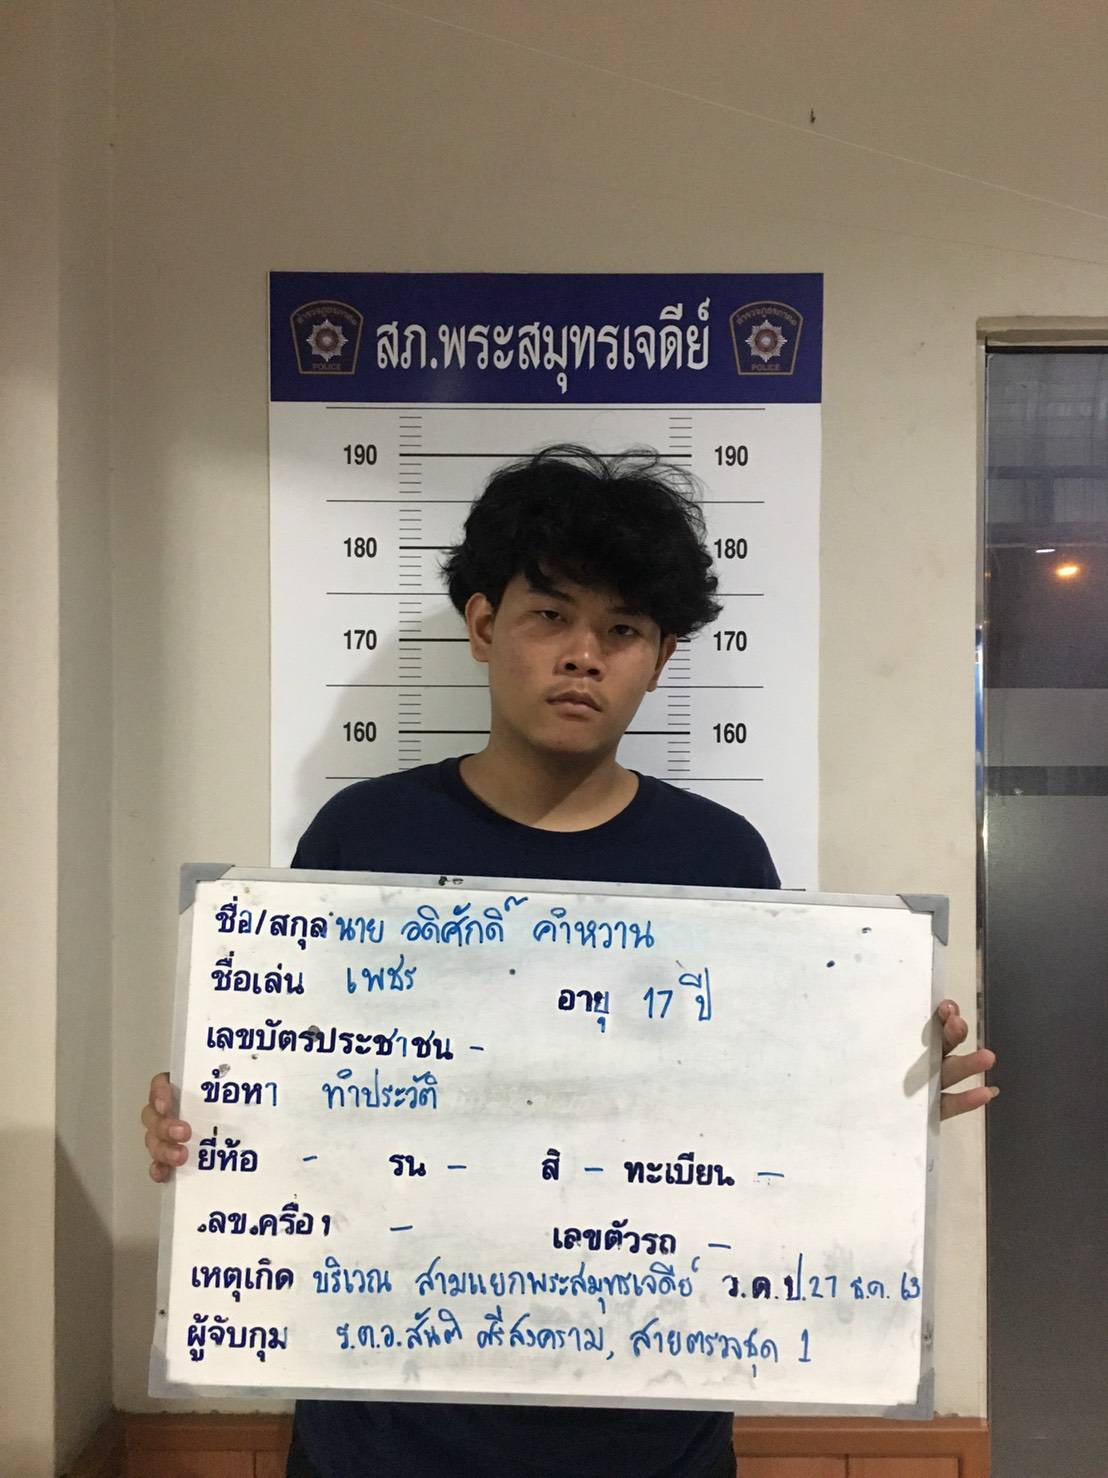 สภ.พระสมุทรเจดีย์
POLICE
POLICE
190 190
180 180
170 170
160 160
ชื่อ/สกุล นาย อดิศักดิ์ คำหวาน
ชื่อเล่น เพชร อายุ 17 ปี
เลขบัตรประชาชน -
ข้อหา ทำประวัติ
ยี่ห้อ - รน - สี - ทะเบียน -
.ลข.ครื่อง - เลขตัวรถ -
เหตุเกิด บริเวณ สามแยกพระสมุทรเจดีย์ ว.ด.ป. 27 ธ.ค. 63
ผู้จับกุม ร.ต.อ.สันติ ศรีสงคราม, สายตรวจชุด 1